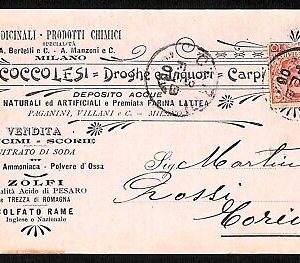 DICINALI - PRODOTTI CHIMICI
SPECIALITÀ
A. Bertelli e C. - A. Manzoni e C.
MILANO
COCCOLESI = Droghe e Liquori = Carpi
DEPOSITO ACQUE
NATURALI ed ARTIFICIALI e Premiata FARINA LATTEA
PAGANINI, VILLANI e C. - MILANO
VENDITA
CIMI e SCORIE
NITRATO DI SODA
Ammoniaca - Polvere d'Ossa
ZOLFI
alità Acido di PESARO
e TREZZA di ROMAGNA
OLFATO RAME
Inglese e Nazionale
Sig Martin
Rossi